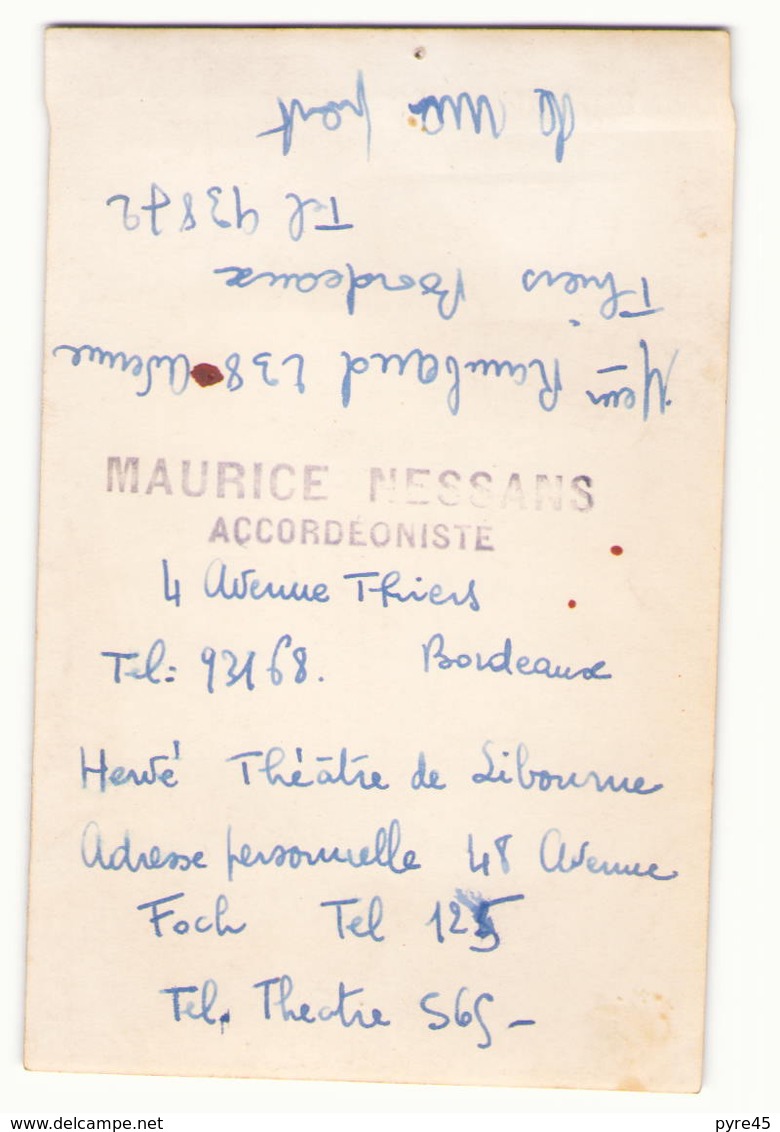 MAURICE NESSANS
ACCORDÉONISTE
4 Avenue Thiers
Tel: 93168. Bordeaux
Hervé Théâtre de Libourne
Adresse personnelle 48 Avenue
Foch Tel 125
Tel. Theatre 565 -
Rambaud 238 Avenue
Thiers Bordeaux
Tel 93872
de ma part
delcampe.net
pyre45